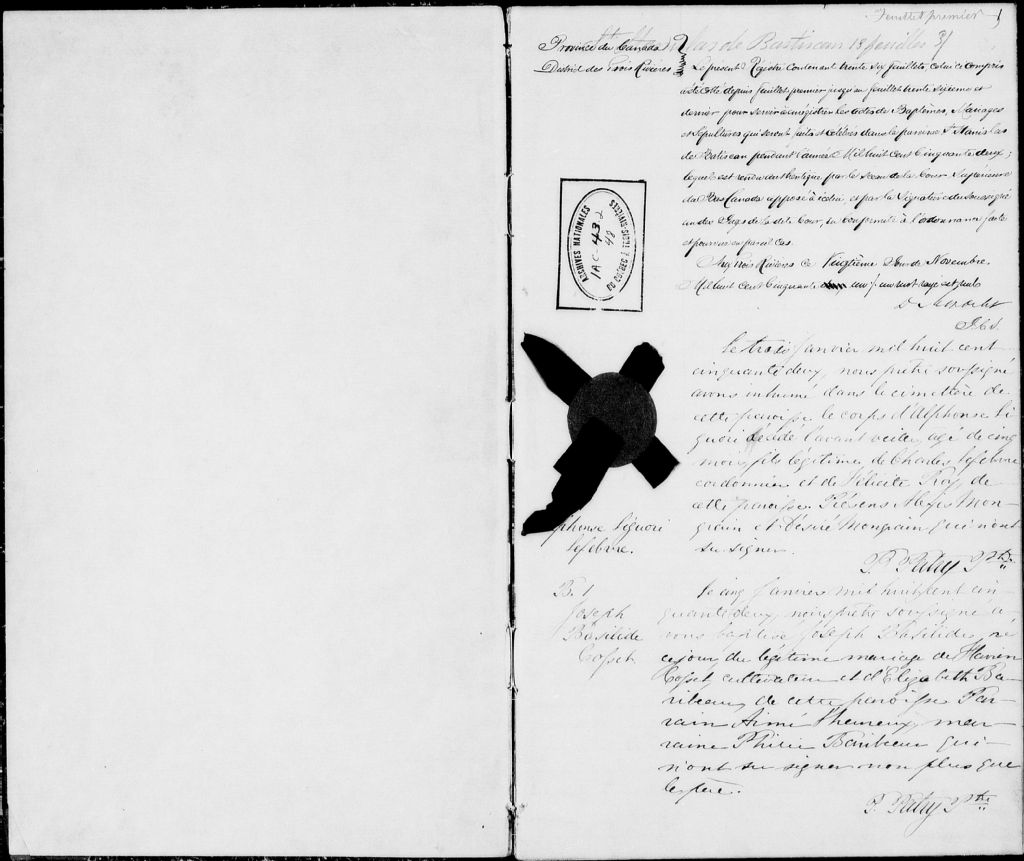 Feuillet premier 1
Province du Canada
District des Trois Rivières
las de Batiscan 18 feuilles
Le présent Régistre Contenant trente six feuillets, celui ci compris
a été côté depuis feuillet premier jusqu'au feuillet trente sixieme et
dernier pour servir à enrégistrer les actes de Baptêmes, Mariages
et Sépultures qui seront faits et célébrés dans la paroisse St Stanislas
de Batiscan pendant l'année Mil huit Cent Cinquante deux;
lequel est rendu authentique par le Sceau de la Cour Supérieure
du Bas Canada apposé à icelui, et par la Signature du Soussigné
un des Juges de la dite Cour, en conformité à l'ordonnance faite
et pourvue en pareil cas.
Aux Trois Rivières Ce Vingtième Jour de Novembre
Mil huit Cent Cinquante un / un mot rayé est nul
J.C.S.
ARCHIVES NATIONALES
1AC-432
48
DU QUÉBEC À TROIS-RIVIÈRES
Le trois Janvier mil huit cent
cinquante deux, nous prêtre soussigné
avons inhumé dans le cimetière de
cette paroisse le corps d'Alphonse Li
guori décédé l'avant veille, agé de cinq
mois, fils légitime de Charles Lefebvre
cordonnier et de Félicité Roy, de
cette paroisse. Présens Alexis Mon-
grain et Désiré Mongrain qui n'ont
su signer.
P. Patry Ptre
phonse Liguori
Lefebvre.
B. 1
Joseph
Basilide
Cosset
Le cinq Janvier mil huit cent cin
quante deux, nous prêtre soussigné a-
vons baptisé Joseph Basilide, né
ce jour du légitime mariage de Flavien
Cosset cultivateur et d'Elizabeth Ba-
ribeau, de cette paroisse Par-
rain Aimé Lheureux, mar-
raine Philie Baribeau qui
n'ont su signer non plus que
le père.
P. Patry Ptre